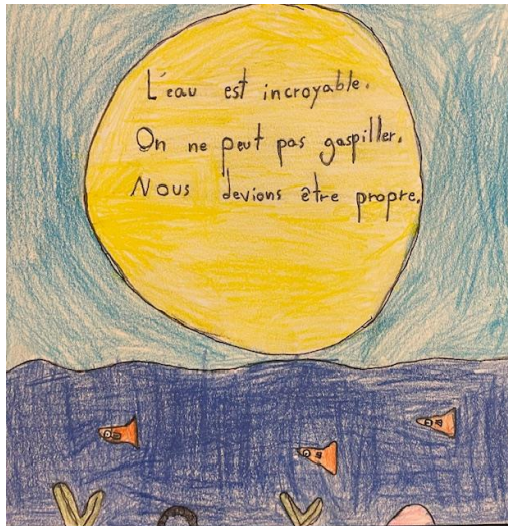 L'eau est incroyable.
On ne peut pas gaspiller.
Nous devions être propre.